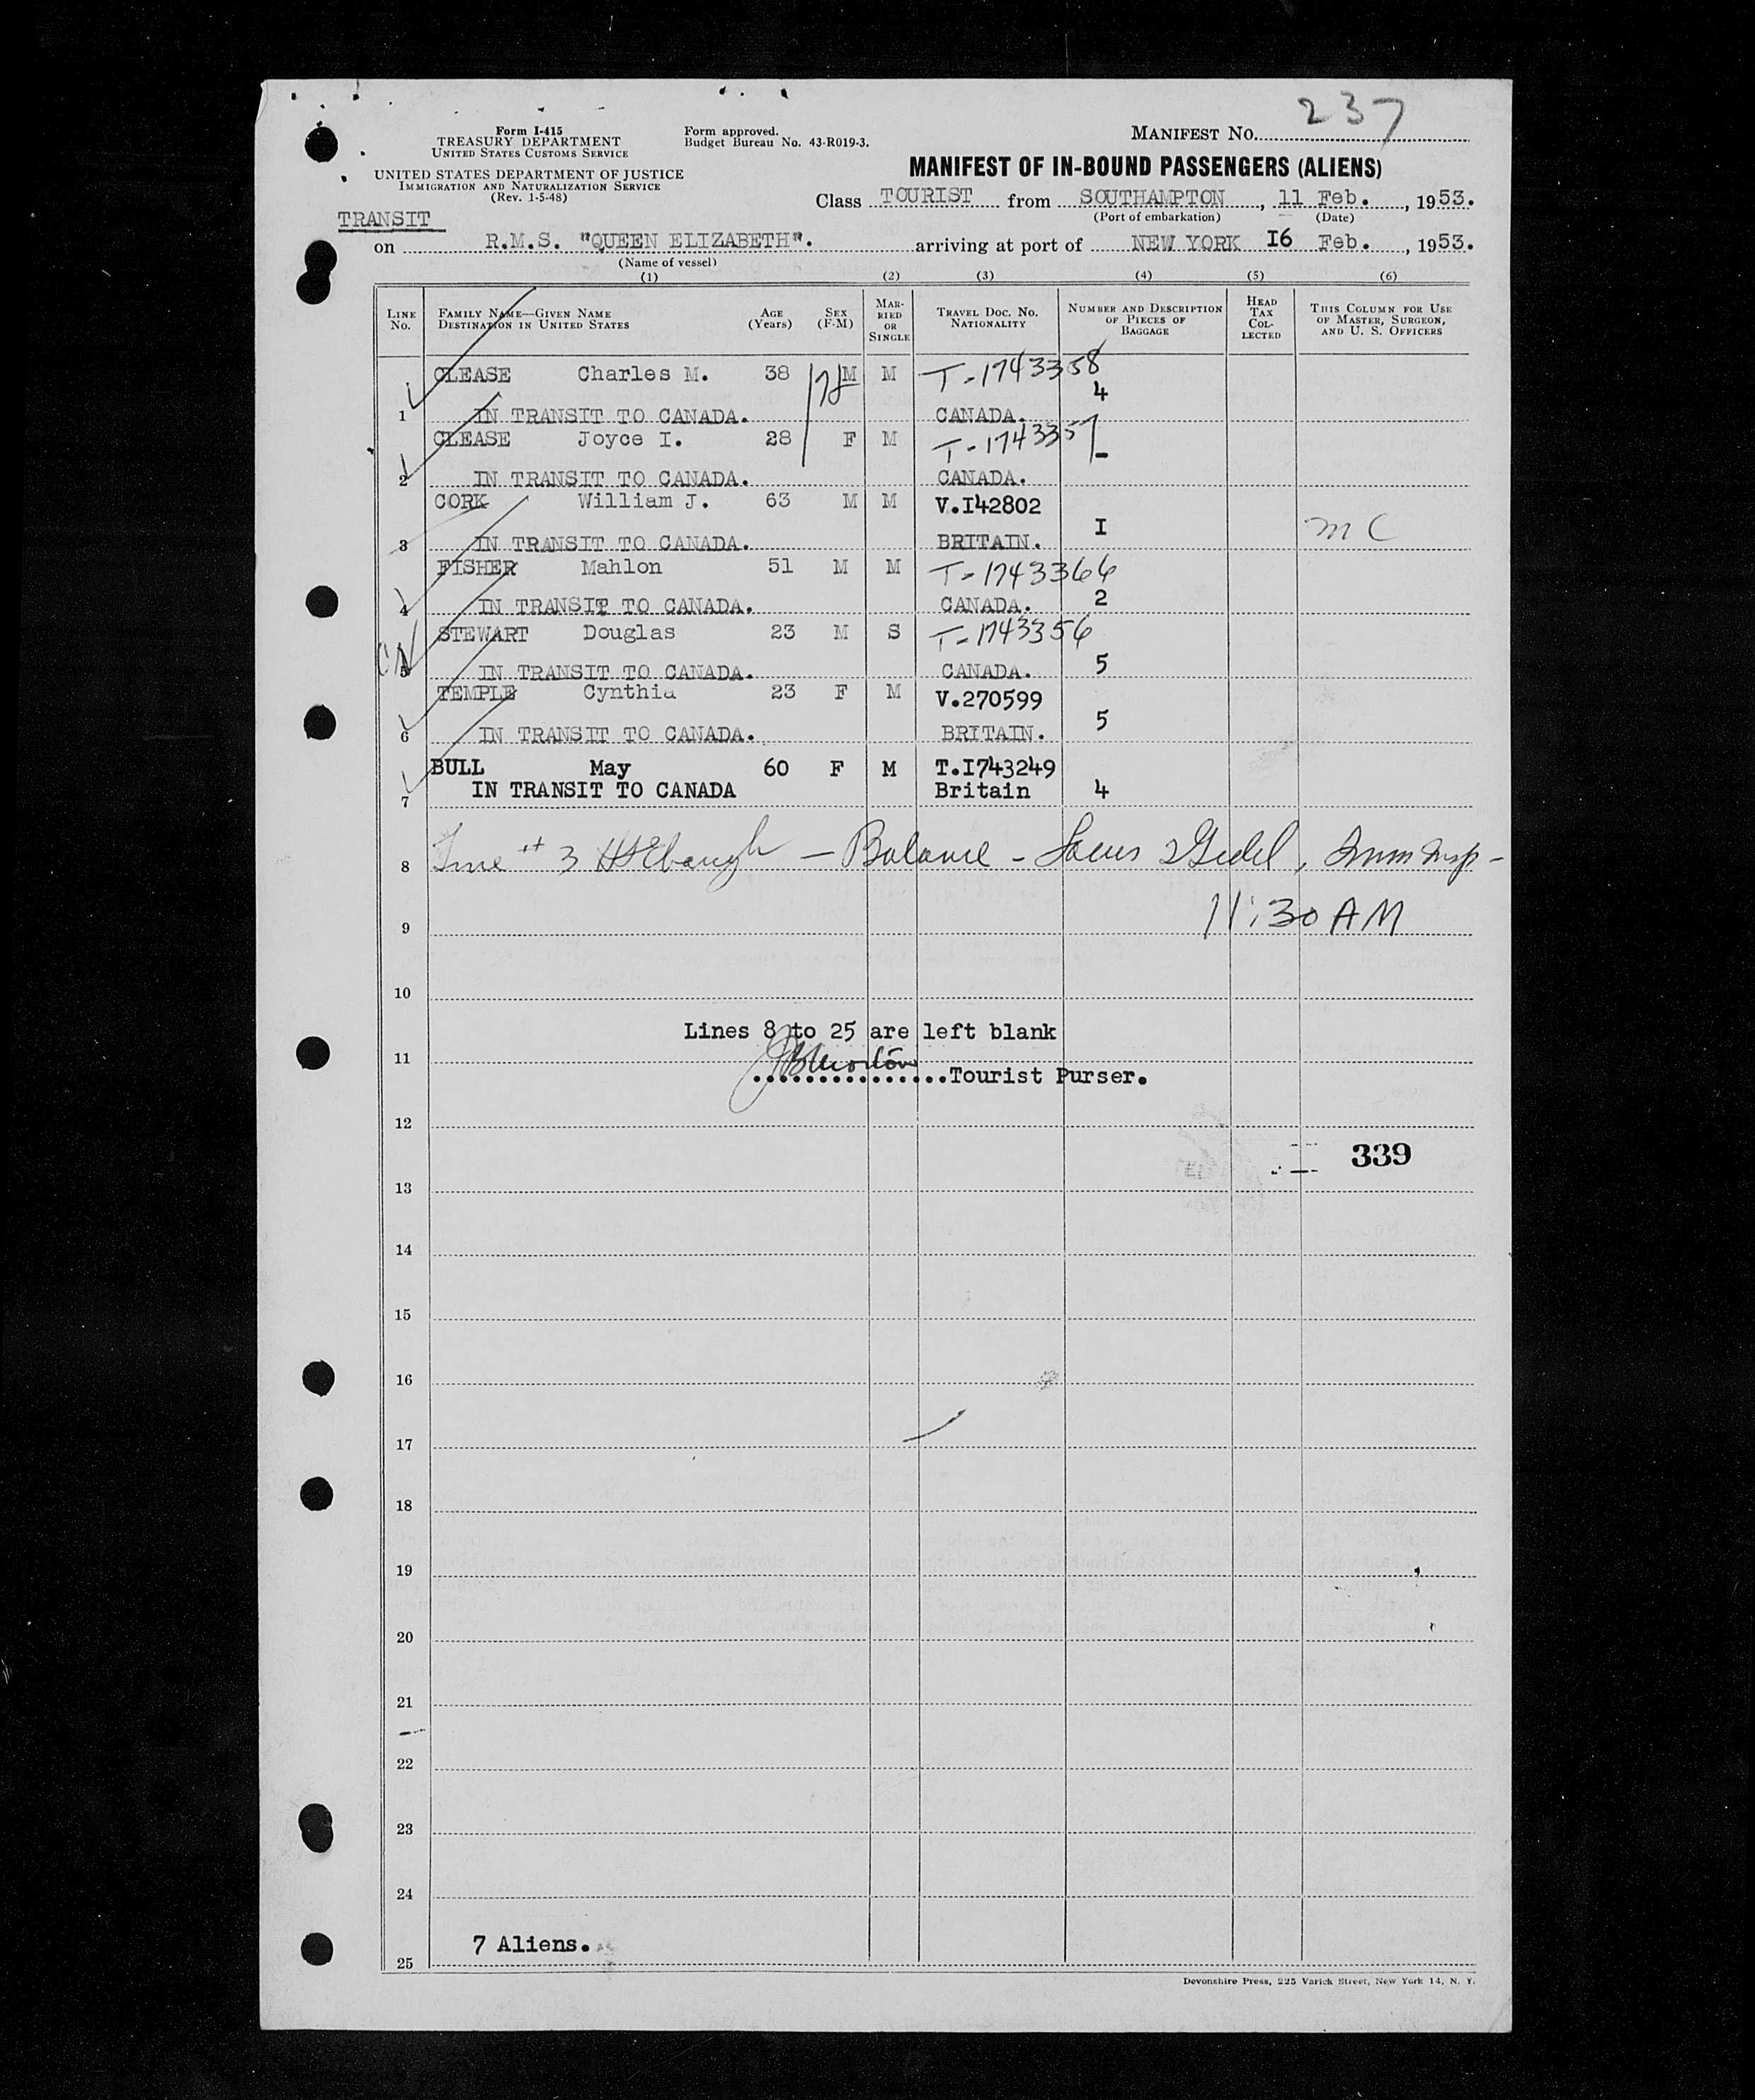 237
Form I-415
TREASURY DEPARTMENT
UNITED STATES CUSTOMS SERVICE
UNITED STATES DEPARTMENT OF JUSTICE
IMMIGRATION AND NATURALIZATION SERVICE
(Rev. 1-5-48)
Form approved.
Budget Bureau No. 43-R019-3.
MANIFEST NO.
MANIFEST OF IN-BOUND PASSENGERS (ALIENS)
Class TOURIST from SOUTHAMPTON, 11 Feb., 1953.
(Port of embarkation) (Date)
TRANSIT
on R.M.S. "QUEEN ELIZABETH". arriving at port of NEW YORK I6 Feb., 1953.
(Name of vessel)
(1) (2) (3) (4) (5) (6)
LINE NO. FAMILY NAME—GIVEN NAME DESTINATION IN UNITED STATES AGE (Years) SEX (F-M) MARRIED OR SINGLE TRAVEL DOC. NO. NATIONALITY NUMBER AND DESCRIPTION OF PIECES OF BAGGAGE HEAD TAX COLLECTED THIS COLUMN FOR USE OF MASTER, SURGEON, AND U. S. OFFICERS
CLEASE Charles M. 38 M M T-1743358
4
1 IN TRANSIT TO CANADA. CANADA.
CLEASE Joyce I. 28 F M T-1743357
-
2 IN TRANSIT TO CANADA. CANADA.
CORK William J. 63 M M V.I42802
I MC
3 IN TRANSIT TO CANADA. BRITAIN.
FISHER Mahlon 51 M M T-1743366
4 IN TRANSIT TO CANADA. CANADA. 2
STEWART Douglas 23 M S T-1743356
5 IN TRANSIT TO CANADA. CANADA. 5
TEMPLE Cynthia 23 F M V.270599
5
6 IN TRANSIT TO CANADA. BRITAIN.
BULL May 60 F M T.I743249
7 IN TRANSIT TO CANADA Britain 4
8 Line # 3 — Balance -
9 11:30 AM
10
Lines 8 to 25 are left blank
11
Tourist Purser.
12
339
13
14
15
16
17
18
19
20
21
22
23
24
7 Aliens.
25
Devonshire Press, 225 Varick Street, New York 14, N. Y.